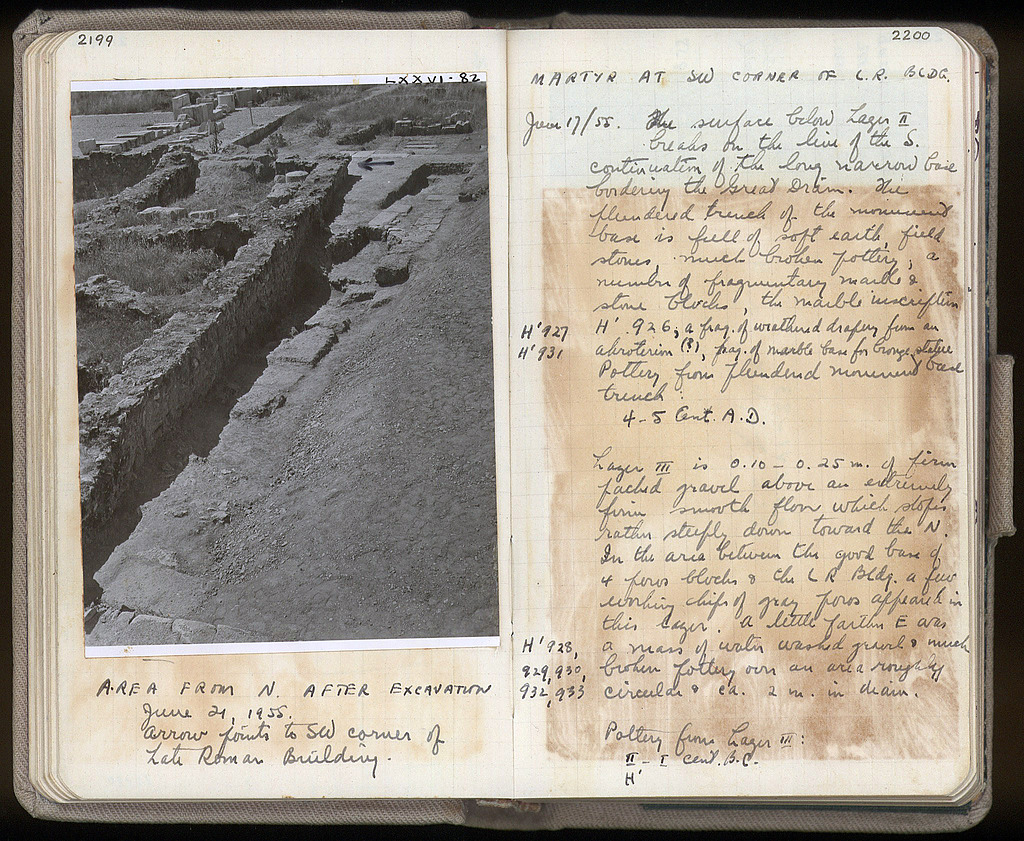 2199
LXXVI-82
AREA FROM N. AFTER EXCAVATION
June 21, 1955.
Arrow points to SW corner of
Late Roman Building.
2200
MARTYR AT SW CORNER OF L.R. BLDG.
June 17/55. The surface below Layer II
breaks on the line of the S.
continuation of the long narrow base
bordering the Great Drain. The
plundered trench of the monument
base is full of soft earth, field
stones, much broken pottery, a
number of fragmentary marble &
stone blocks, the marble inscription
H' 927 H' 926, a frag. of weathered drapery from an
H' 931 akroterion (?), frag. of marble base for bronze statue
Pottery from plundered monument base
trench:
4-5 Cent. A.D.
Layer III is 0.10 – 0.25 m. of firm
packed gravel above an extremely
firm smooth floor which slopes
rather steeply down toward the N.
In the area between the good base of
4 poros blocks & the LR Bldg. a few
working chips of gray poros appeared in
this layer. A little farther E was
H' 928, a mass of water washed gravel & much
929, 930, broken pottery over an area roughly
932, 933 circular & ca. 2 m. in diam.
Pottery from Layer III:
II – I cent. B.C.
H'